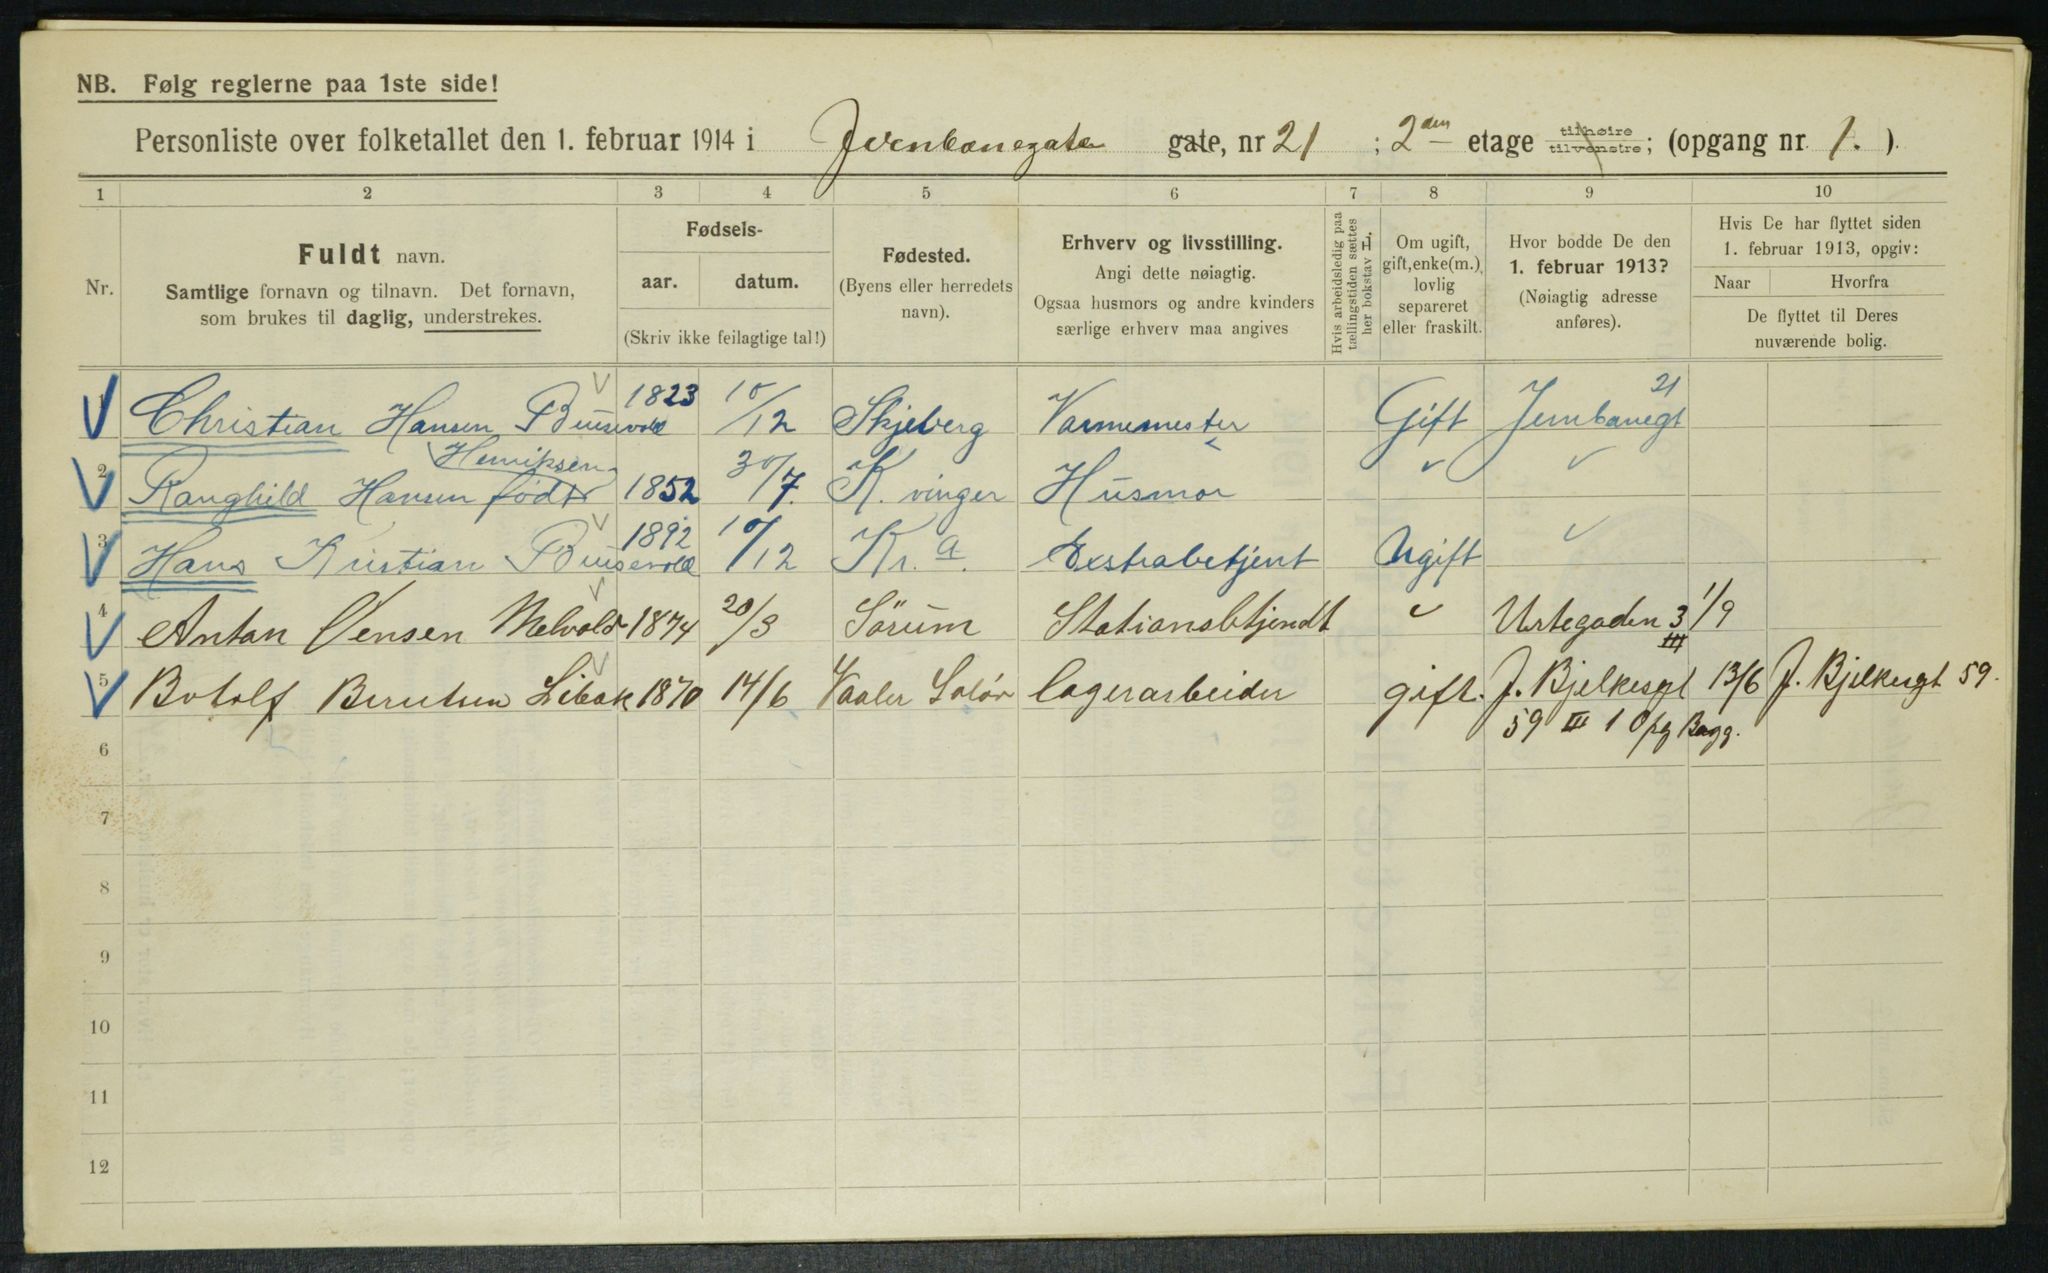 NB. Følg reglerne paa 1ste side!
Personliste over folketallet den 1. februar 1914 i Jernbanegaten gate, nr 21 ; 2den etage tilhøire tilvenstre ; (opgang nr. 1. ).
1 2 3 4 5 6 7 8 9 10
Nr.
Fuldt navn.
Samtlige fornavn og tilnavn. Det fornavn,
som brukes til daglig, understrekes.
Fødsels-
aar. datum.
(Skriv ikke feilagtige tal!)
Fødested.
(Byens eller herredets
navn).
Erhverv og livsstilling.
Angi dette nøiagtig.
Ogsaa husmors og andre kvinders
særlige erhverv maa angives
Hvis arbeidsledig paa
tællingstiden sættes
her bokstav L.
Om ugift,
gift, enke(m.),
lovlig
separeret
eller fraskilt.
Hvor bodde De den
1. februar 1913?
(Nøiagtig adresse
anføres).
Hvis De har flyttet siden
1. februar 1913, opgiv:
Naar Hvorfra
De flyttet til Deres
nuværende bolig.
1 Christian Hansen 1823 10/12 Skjeberg Varmemester Gift Jernbanegt 21
Henriksen
2 Ranghild Hansen født 1852 30/7. K. vinger Husmor
3 Hans Kristian 1892 10/12 Kr. a. Exstrabetjent Ugift
4 Antan Jensen Melvold 1874 20/3 Sörum Stationsbtjendt Urtegaden 3 III 1/9
5 Botolf Berntsen Libak 1870 14/6 Vaaler Solör lagerarbeider gift. J. Bjelkesgt 13/6 J. Bjelkesgt 59.
59 III 1 Opg Bagg.
6
7
8
9
10
11
12